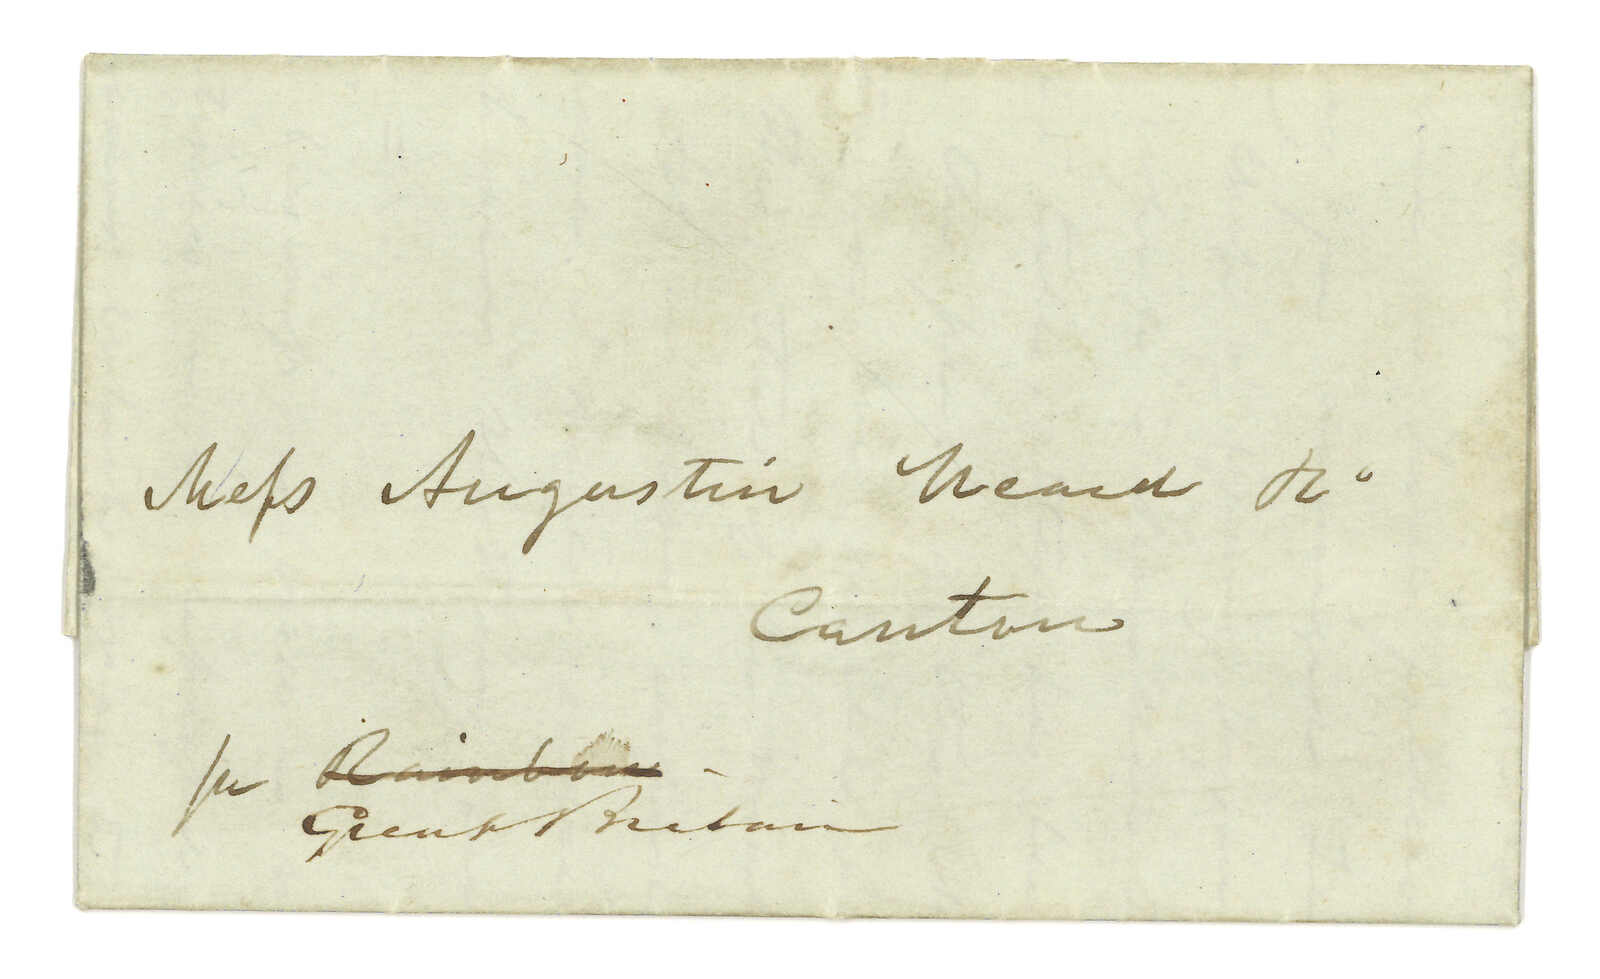 Mess Augustin Heard &Co
Canton
per Rainbow -
Great Britain